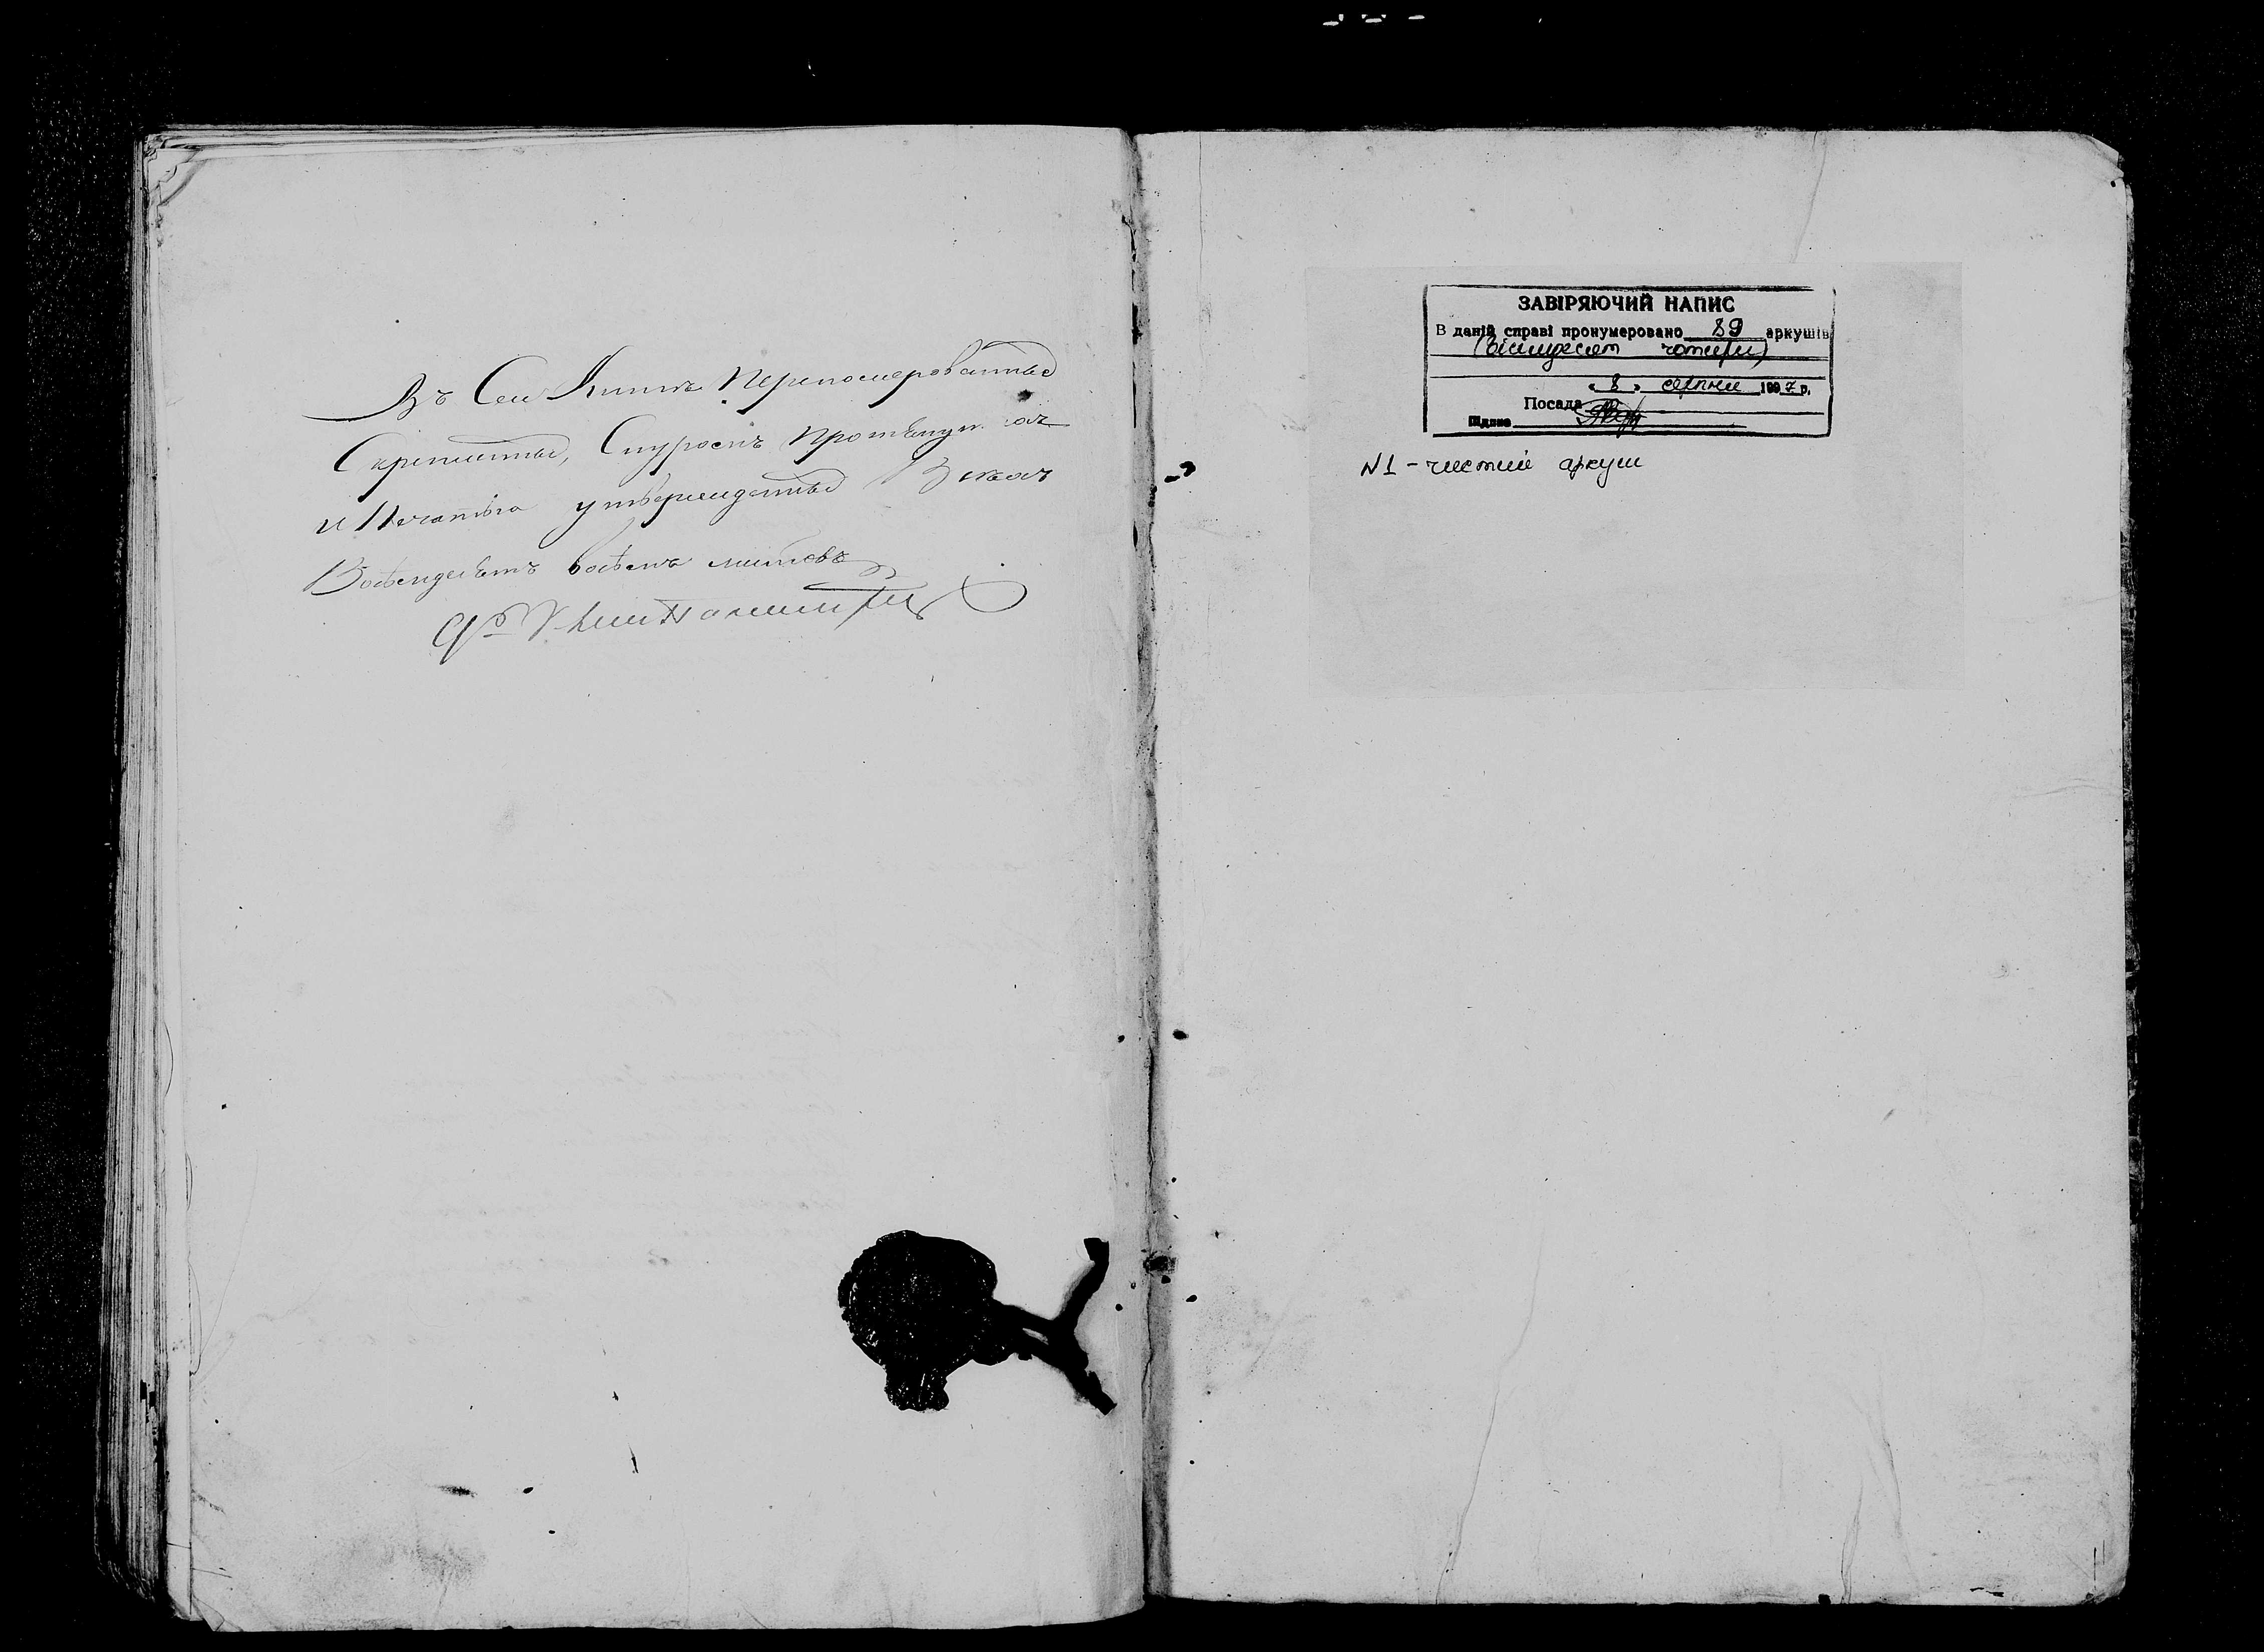 Въ Сей Книге Перепомерованные
Скрепленные, Снуромъ Протянут
и Печатью утвержденные Всехъ
Восемдесятъ восемь листовъ
ЗАВІРЯЮЧИЙ НАПИС
В даній справі пронумеровано 89 аркушів
(Вісімдесят чотири)
"8" серпня 1997 р.
Посада
Підпис
N1 - чистий аркуш